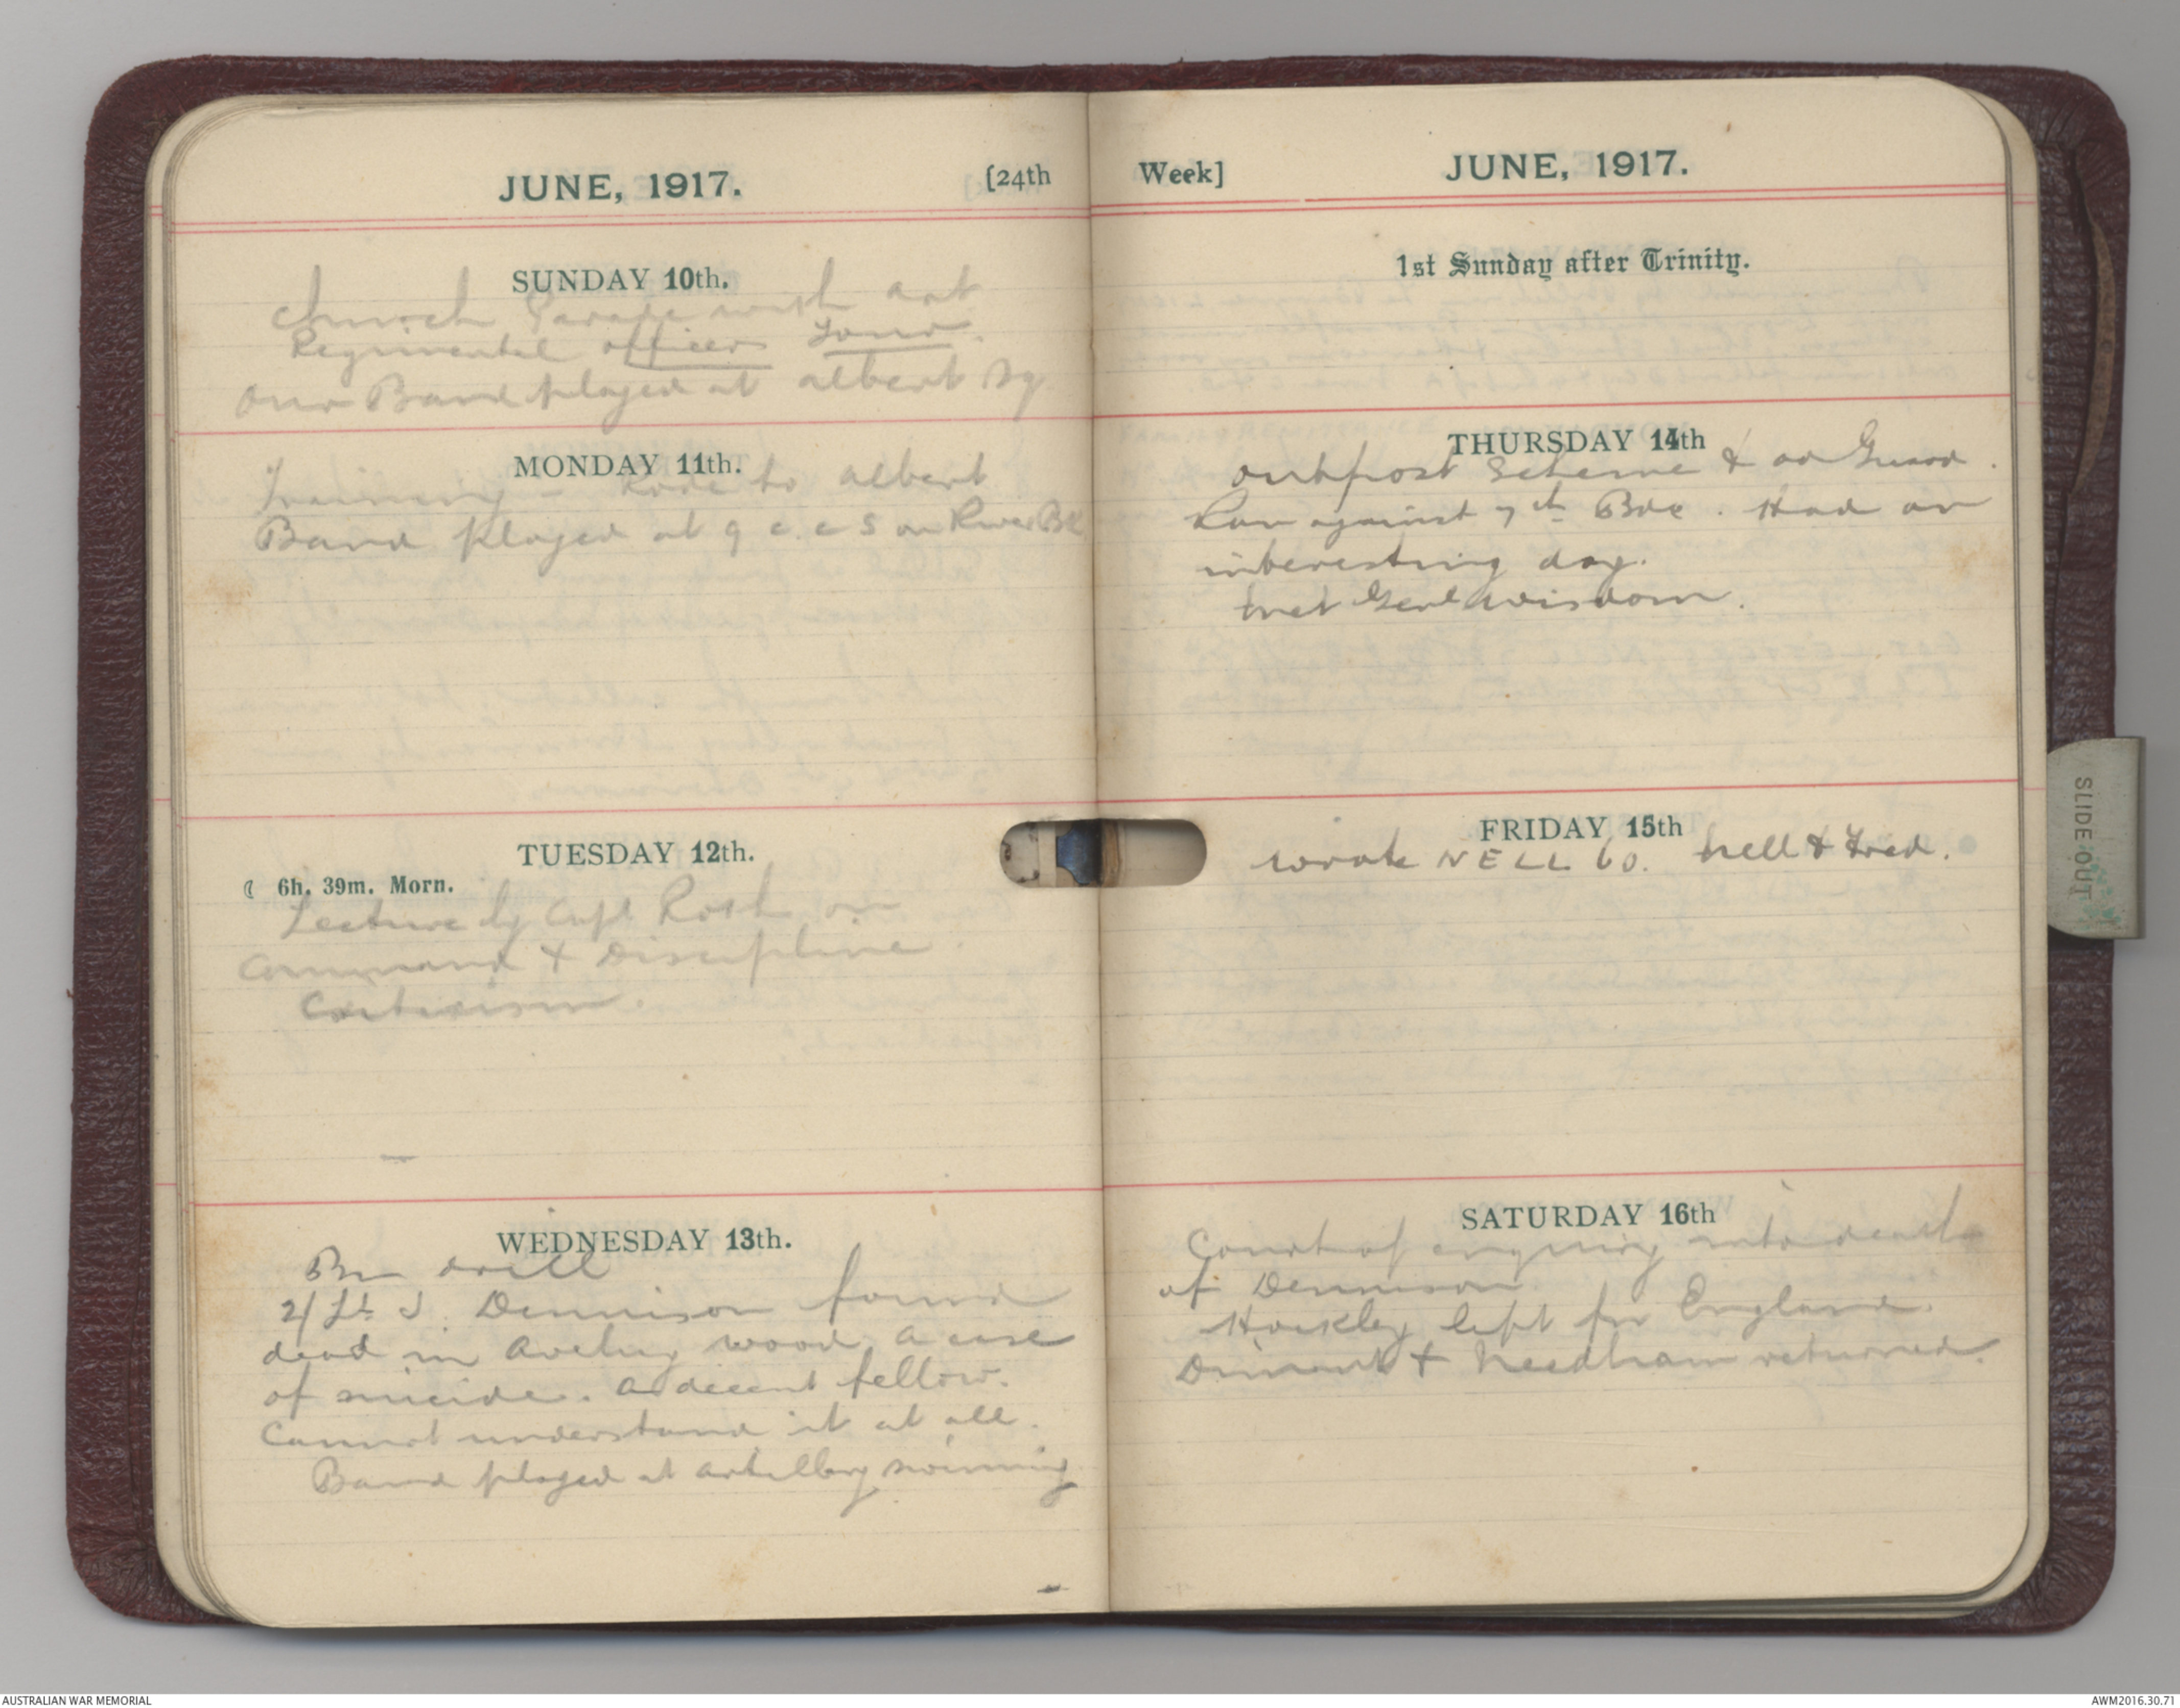 JUNE, 1917. [24th
SUNDAY 10th.
Church Parade with art
Regimental officers
our Band played at albert Sq
MONDAY 11th.
Training - Rode to albert
Band played at 9 c.c S on River Bk
TUESDAY 12th.
☾ 6h. 39m. Morn.
Lecture by Capt on
Command & Discipline
Criticism.
WEDNESDAY 13th.
Bn drill
2/Lt J. Dennison found
dead in Aveluy wood a case
of suicide. A decent fellow.
Cannot understand it at all.
Band played at artillery swimming
Week] JUNE, 1917.
1st Sunday after Trinity.
THURSDAY 14th
outpost scheme & ad Guard.
Run against 7th Bde. Had an
interesting day.
met Genl Wisdom.
FRIDAY 15th
wrote NELL 60. Nell & Fred.
SATURDAY 16th
Court of enquiry into death
of Dennison.
left for England.
& Needham returned.
SLIDE OUT
AUSTRALIAN WAR MEMORIAL
AWM2016.30.71